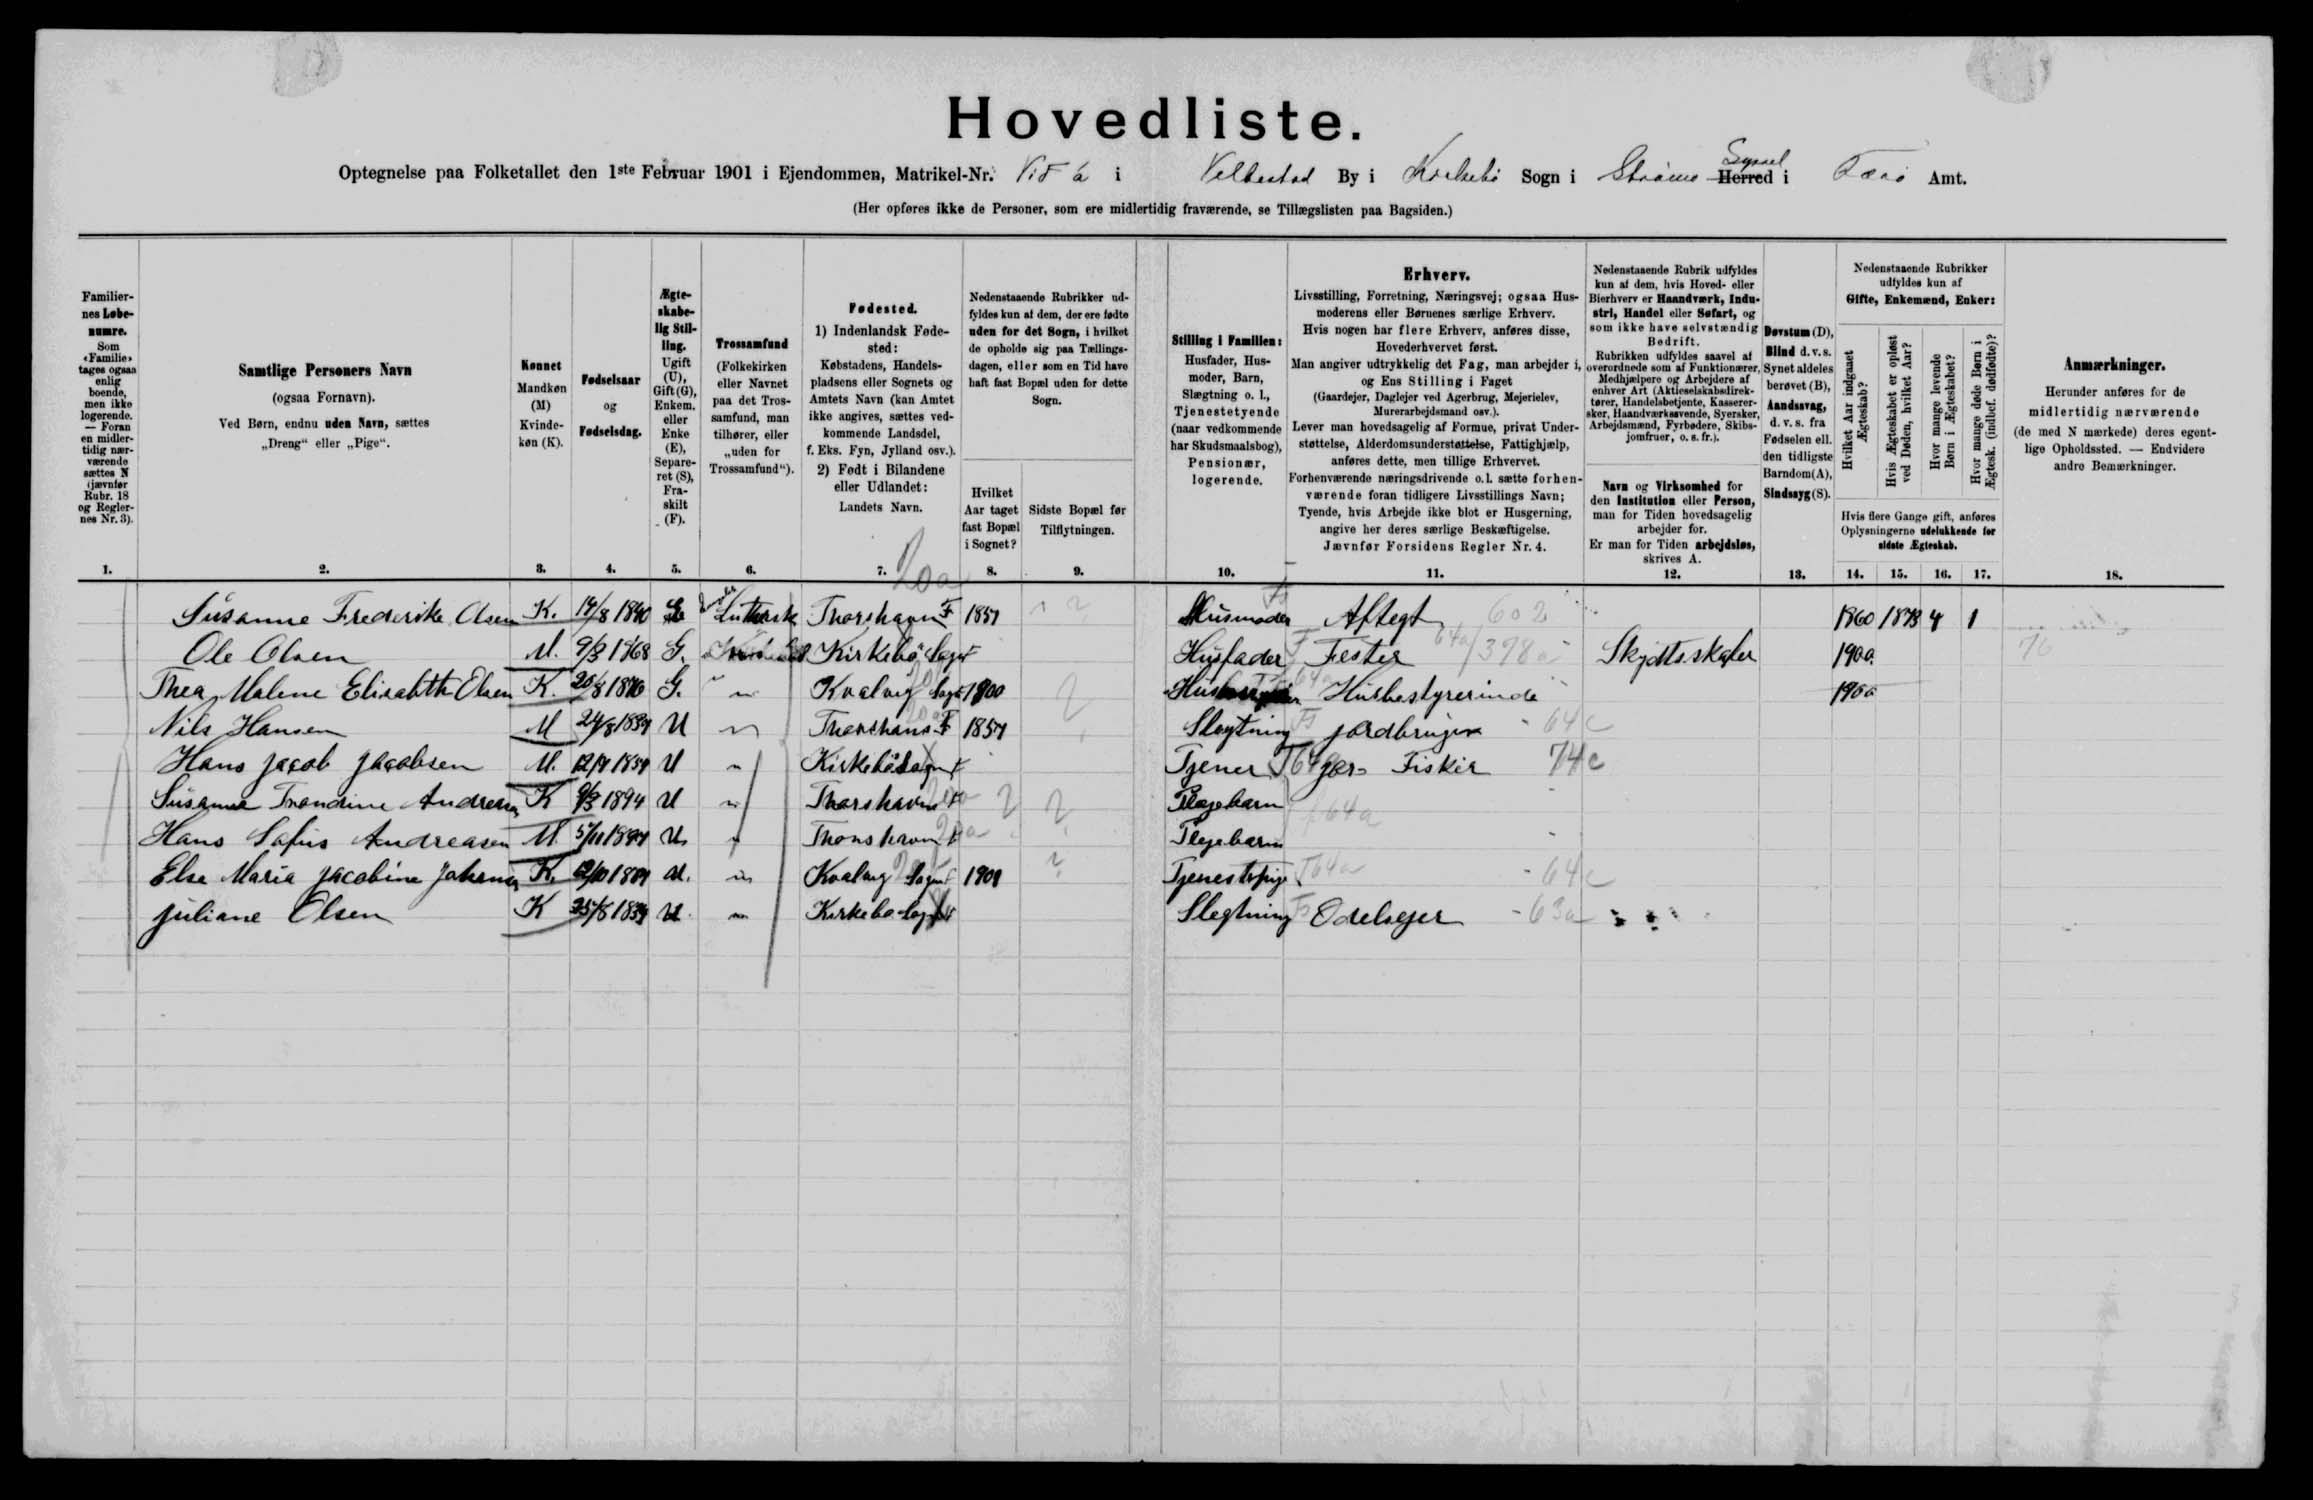 Hovedliste.
Optegnelse paa Folketallet den 1ste Februar 1901 i Ejendommen, Matrikel-Nr. i Velbestad By i Kirkebö Sogn i Strömö Syssel Herred i Færö Amt.
(Her opføres ikke de Personer, som ere midlertidig fraværende, se Tillægslisten paa Bagsiden.)
Familiernes Løbenumre. Som «Familie» tages ogsaa enlig boende, men ikke logerende. — Foran en midlertidig nærværende sættes N (jævnfør Rubr. 18 og Reglernes Nr. 3).
Samtlige Personers Navn (ogsaa Fornavn). Ved Børn, endnu uden Navn, sættes „Dreng“ eller „Pige“.
Kønnet Mandkøn (M) Kvindekøn (K).
Fødselsaar og Fødselsdag.
Ægteskabelig Stilling. Ugift (U), Gift (G), Enkem. eller Enke (E), Separeret (S), Fraskilt (F).
Trossamfund (Folkekirken eller Navnet paa det Trossamfund, man tilhører, eller „uden for Trossamfund“).
Fødested. 1) Indenlandsk Fødested: Købstadens, Handelspladsens eller Sognets og Amtets Navn (kan Amtet ikke angives, sættes vedkommende Landsdel, f. Eks. Fyn, Jylland osv.). 2) Født i Bilandene eller Udlandet: Landets Navn.
Nedenstaaende Rubrikker udfyldes kun af dem, der ere fødte uden for det Sogn, i hvilket de opholde sig paa Tællingsdagen, eller som en Tid have haft fast Bopæl uden for dette Sogn.
Hvilket Aar taget fast Bopæl i Sognet?
Sidste Bopæl før Tilflytningen.
Stilling i Familien: Husfader, Husmoder, Barn, Slægtning o. l., Tjenestetyende (naar vedkommende har Skudsmaalsbog), Pensionær, logerende.
Erhverv. Livsstilling, Forretning, Næringsvej; ogsaa Husmoderens eller Børnenes særlige Erhverv. Hvis nogen har flere Erhverv, anføres disse, Hovederhvervet først. Man angiver udtrykkelig det Fag, man arbejder i, og Ens Stilling i Faget (Gaardejer, Daglejer ved Agerbrug, Mejerielev, Murerarbejdsmand osv.). Lever man hovedsagelig af Formue, privat Understøttelse, Alderdomsunderstøttelse, Fattighjælp, anføres dette, men tillige Erhvervet. Forhenværende næringsdrivende o. l. sætte forhenværende foran tidligere Livsstillings Navn; Tyende, hvis Arbejde ikke blot er Husgerning, angive her deres særlige Beskæftigelse. Jævnfør Forsidens Regler Nr. 4.
Nedenstaaende Rubrik udfyldes kun af dem, hvis Hoved- eller Bierhverv er Haandværk, Industri, Handel eller Søfart, og som ikke have selvstændig Bedrift. Rubrikken udfyldes saavel af overordnede som af Funktionærer, Medhjælpere og Arbejdere af enhver Art (Aktieselskabsdirektører, Handelsbetjente, Kasserersker, Haandværkssvende, Syersker, Arbejdsmænd, Fyrbødere, Skibsjomfruer, o. s. fr.).
Navn og Virksomhed for den Institution eller Person, man for Tiden hovedsagelig arbejder for. Er man for Tiden arbejdsløs, skrives A.
Døvstum (D), Blind d. v. s. Synet aldeles berøvet (B), Aandssvag, d. v. s. fra Fødselen ell. den tidligste Barndom (A), Sindssyg (S).
Nedenstaaende Rubrikker udfyldes kun af Gifte, Enkemænd, Enker:
Hvilket Aar indgaaet Ægteskab?
Hvis Ægteskabet er opløst ved Døden, hvilket Aar?
Hvor mange levende Børn i Ægteskabet?
Hvor mange døde Børn i Ægtesk. (indbef. dødfødte)?
Hvis flere Gange gift, anføres Oplysningerne udelukkende for sidste Ægteskab.
Anmærkninger. Herunder anføres for de midlertidig nærværende (de med N mærkede) deres egentlige Opholdssted. — Endvidere andre Bemærkninger.
1. 2. 3. 4. 5. 6. 7. 8. 9. 10. 11. 12. 13. 14. 15. 16. 17. 18.
Susanne Frederike Olsen K. 14/8 1840 E Luthersk Thorshavn F 1857 Husmoder Aftegt 602 1860 1873 4 1
Ole Olsen M. 9/3 1868 G. Kirkebö Sogn Husfader Fester 64a/398a Skydtsskafer 1900 76
Thea Malene Elisabeth Olsen K. 20/8 1876 G. " Kvalvig Sogn 1900 Husbestyrerinde 1900
Nils Hansen M 24/8 1839 U " Thorshavn F 1857 Slegtning jordbruger 64c
Hans Jacob Jacobsen M. 12/4 1834 U " Kirkebö Sogn Tjener Fisker 74c
Susanna Trondine Andreasen K 9/3 1894 U " Thorshavn Plejebarn 64a
Hans Sofus Andreasen M. U " Thorshavn Plejebarn
Else Maria Jacobine K. U. " Kvalvig Sogn Tjenestepige 64a 64c
Juliane Olsen K 25/8 1839 U " Kirkebö Sogn Slegtning Odelsejer 63a